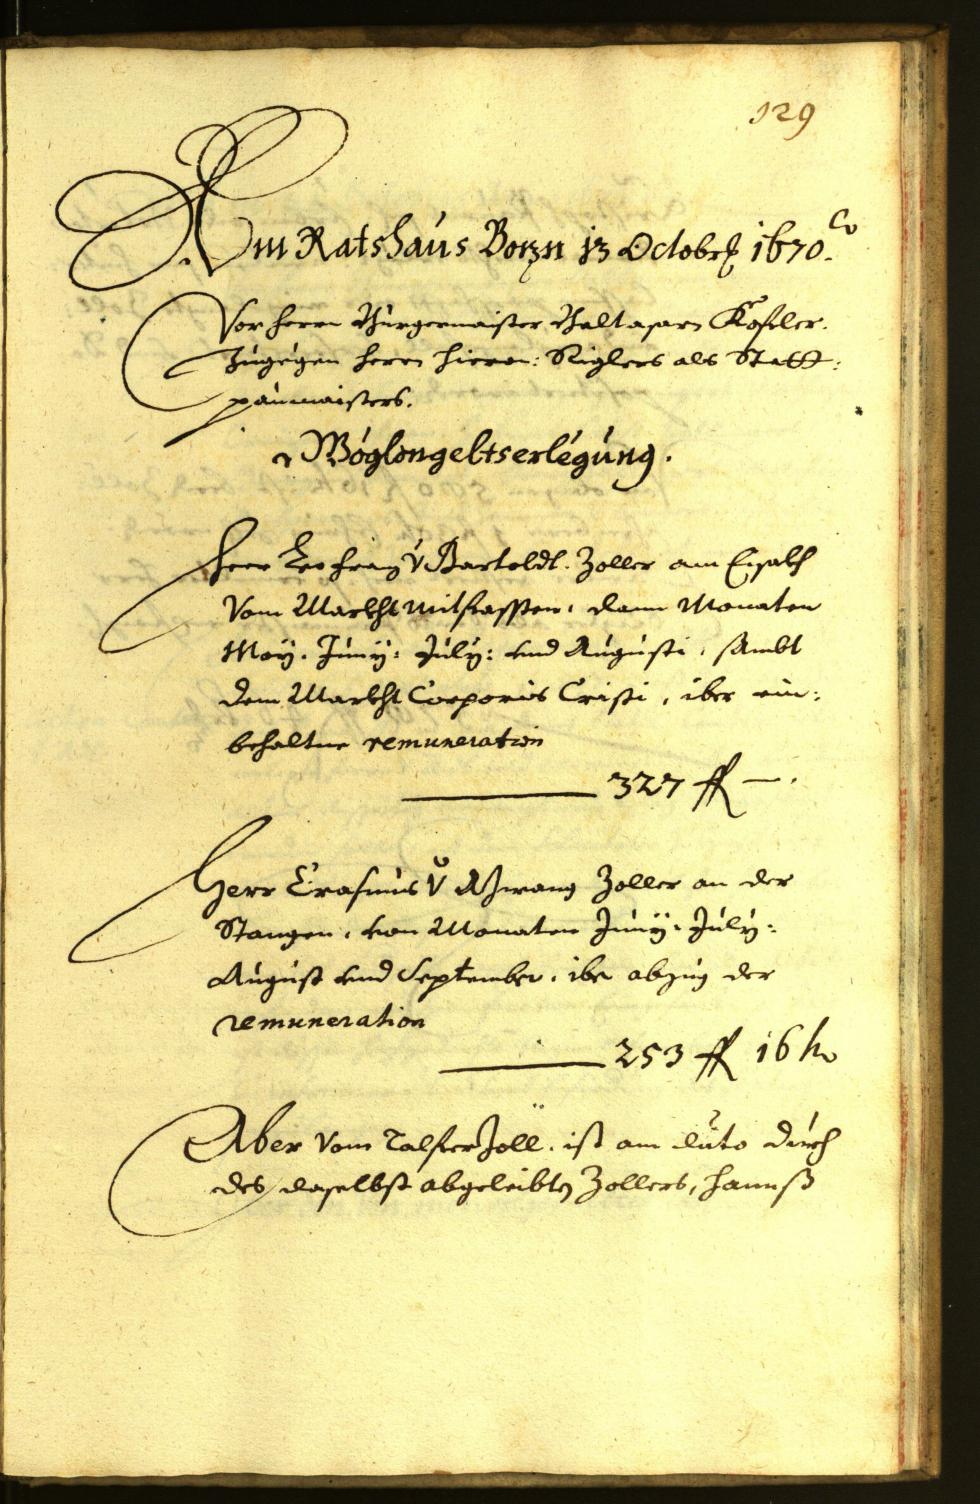 129
Am Ratshaus Bozn 13 Octobr 1670.
Vor herrn Burgermaister Baltasarn Kofler.
Zugegen herrn Hieron: Riglers als Statt:
paumaisters.
Wöglongeltserlegung.
Herr Leo franz v Bartoldt. Zoller am Eisakh
Vom Markht mitfassten, dann Monaten
Maÿ. Junÿ: Julÿ: und Augusti, sambt
dem Markht Corporis Cristi, iber ein:
behaltne remuneration
327 ff —.
Herr Erasmus v Zoller an der
Stangen, von Monaten Junÿ. Julÿ:
August und September, iber abzug der
remuneration
253 ff 16 kr
Aber vom Talfferzoll, ist am dato durch
des daselbst abgeleibten Zollers, hannß